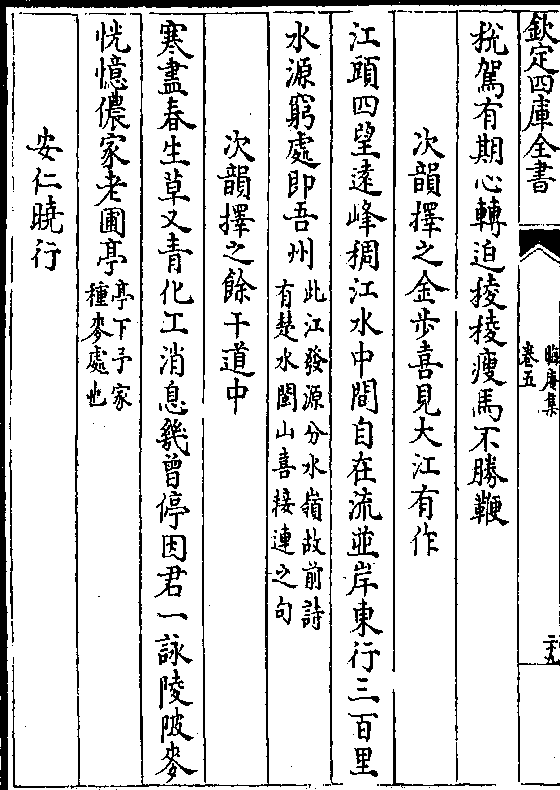 欽定四庫全書
晦庵集
卷五
二九
稅駕有期心轉迫㥄㥄瘦馬不勝鞭
次韻擇之金步喜見大江有作
江頭四望逺峰稠江水中間自在流並岸東行三百里
水源窮處即吾州此江發源分水嶺故前詩有楚水閩山喜接連之句
次韻擇之餘干道中
寒盡春生草又青化工消息幾曾停因君一詠陵陂麥
恍憶儂家老圃亭亭下予家種麥處也
安仁曉行